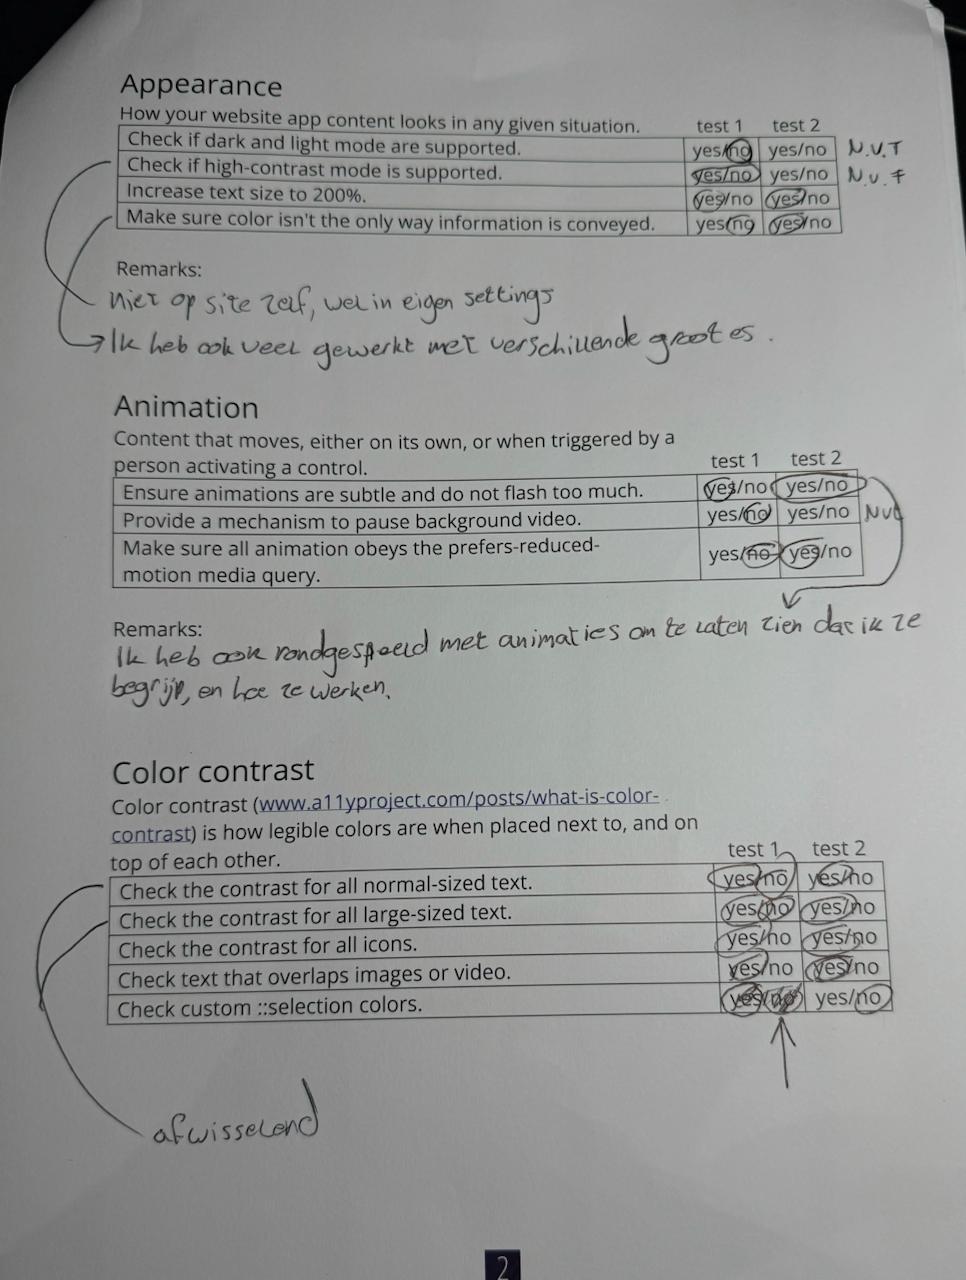 Appearance
How your website app content looks in any given situation. test 1 test 2
Check if dark and light mode are supported. yes/no yes/no N.V.T
Check if high-contrast mode is supported. yes/no yes/no N.V.T
Increase text size to 200%. yes/no yes/no
Make sure color isn't the only way information is conveyed. yes/no yes/no
Remarks:
niet op site zelf, wel in eigen settings
Ik heb ook veel gewerkt met verschillende grootes.
Animation
Content that moves, either on its own, or when triggered by a
person activating a control. test 1 test 2
Ensure animations are subtle and do not flash too much. yes/no yes/no
Provide a mechanism to pause background video. yes/no yes/no
Make sure all animation obeys the prefers-reduced- yes/no yes/no
motion media query.
Remarks:
Ik heb ook rondgespeeld met animaties om te laten zien dat ik ze
begrijp, en hoe ze werken.
Color contrast
Color contrast (www.a11yproject.com/posts/what-is-color-
contrast) is how legible colors are when placed next to, and on
top of each other. test 1 test 2
Check the contrast for all normal-sized text. yes/no yes/no
Check the contrast for all large-sized text. yes/no yes/no
Check the contrast for all icons. yes/no yes/no
Check text that overlaps images or video. yes/no yes/no
Check custom ::selection colors. yes/no yes/no
afwisselend
2